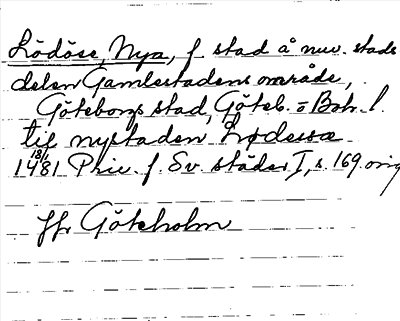 Lödöse, Nya, f. stad å nuv. stads
delen Gamlestadens område,
Göteborgs stad, Göteb. o Boh. l.
til nystaden Lødessæ
18/1
1481 Priv. f. Sv. städer I, s. 169. orig
jfr Göteholm